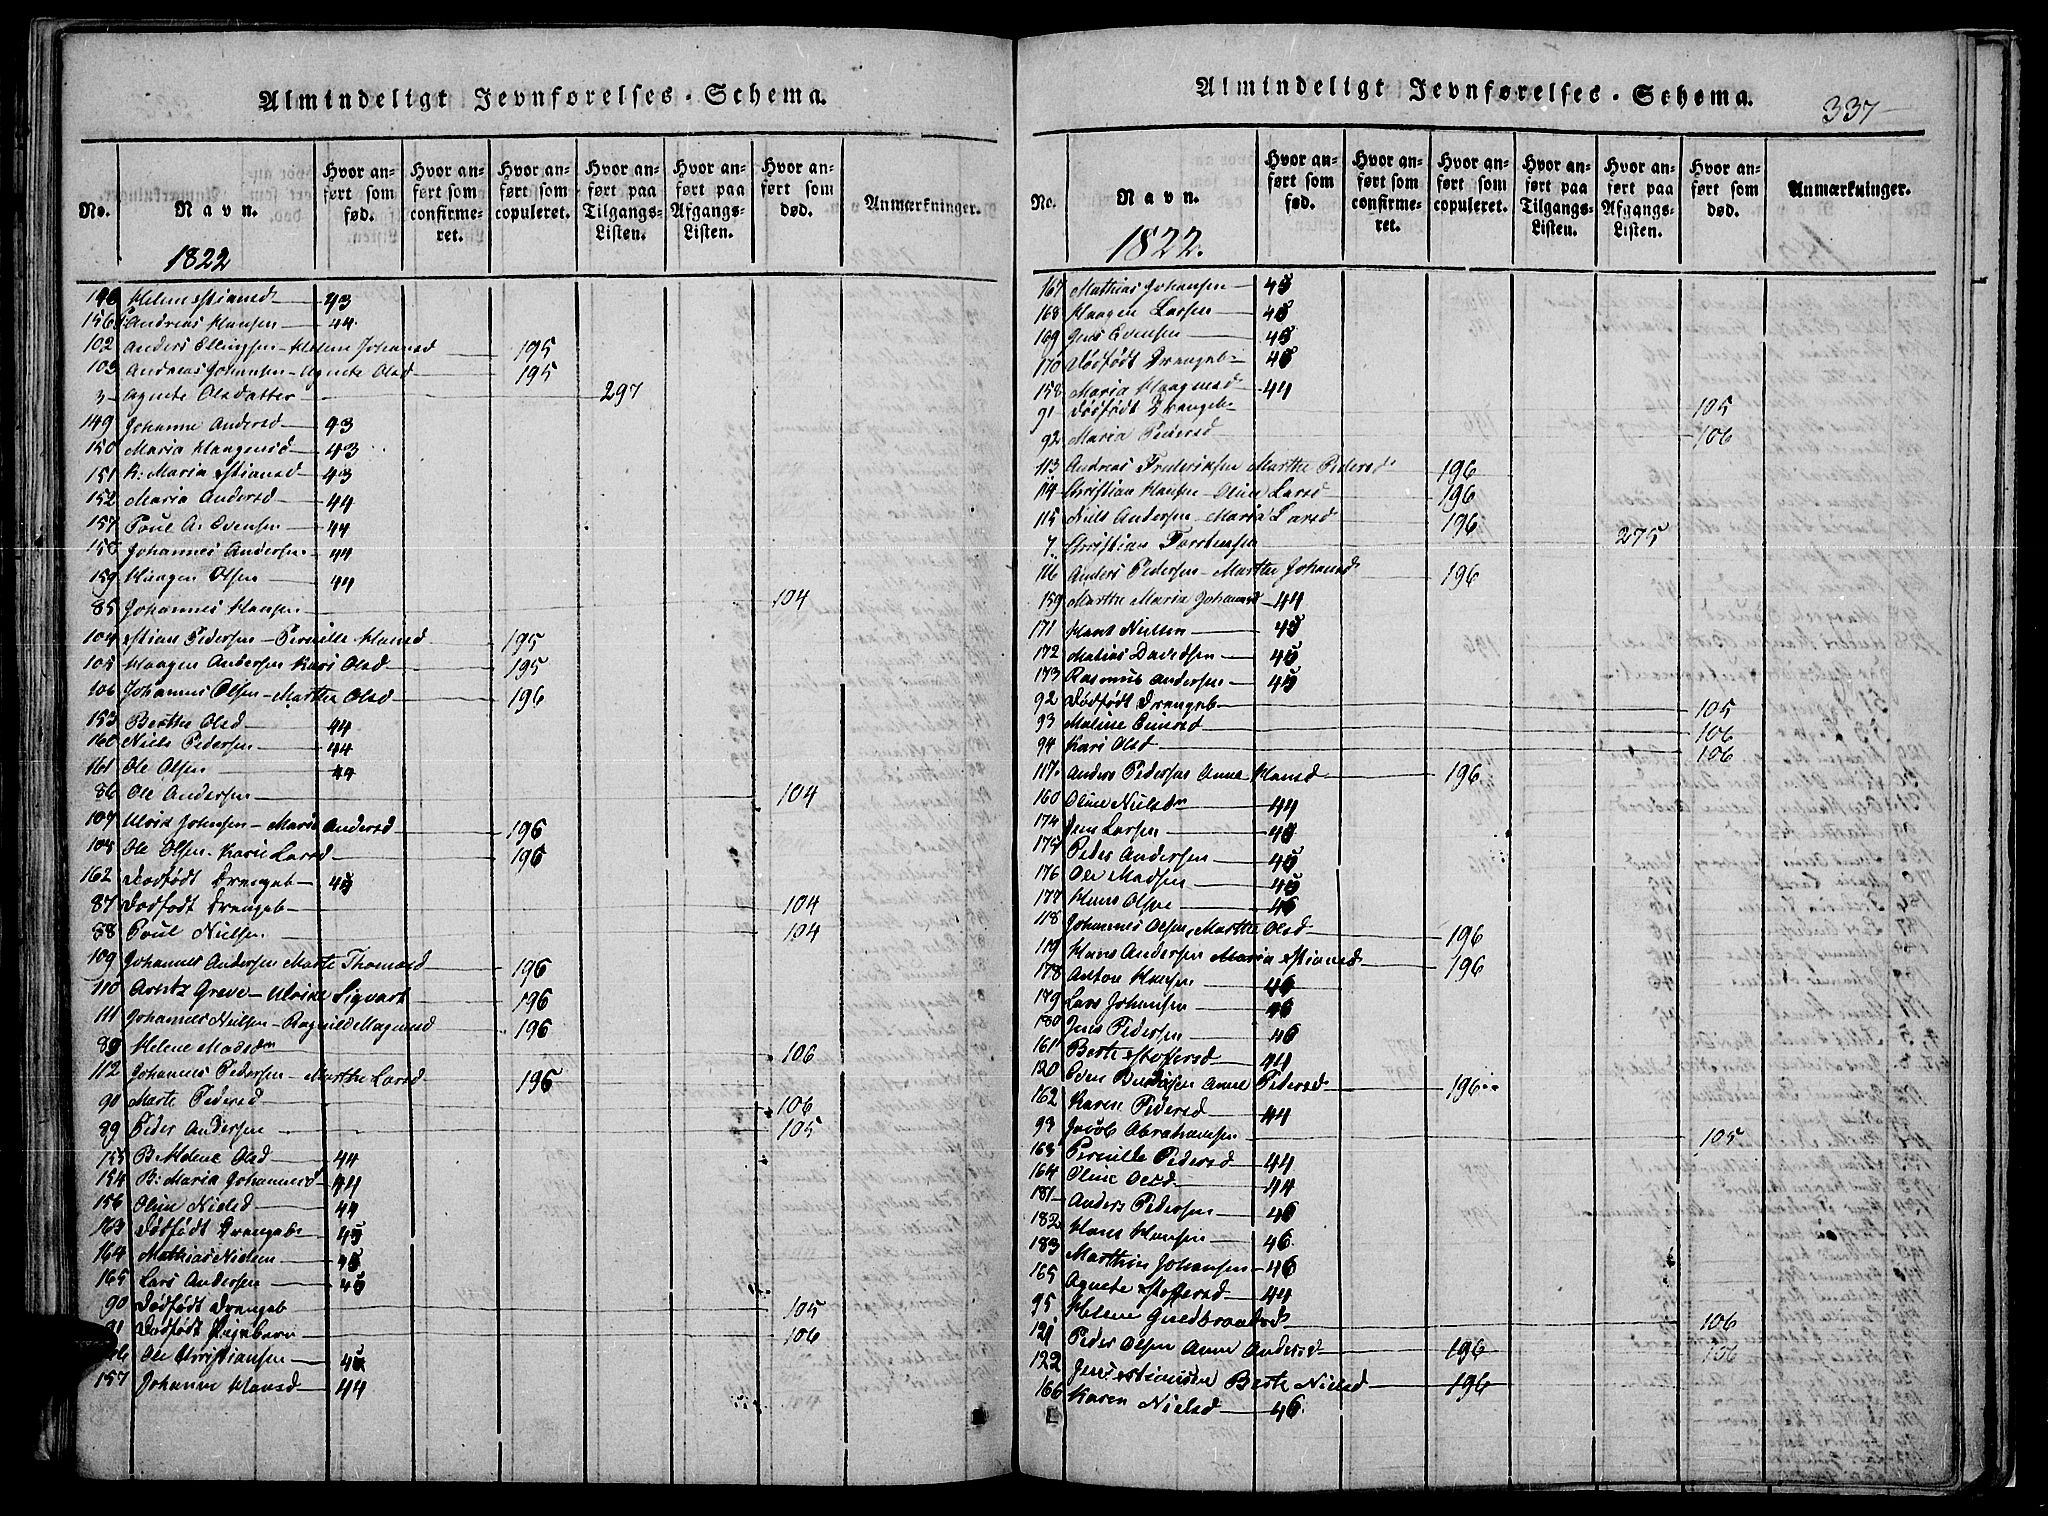 Almindeligt Jevnførelses-Schema.
No.
Navn.
Hvor anført som fød.
Hvor anført som confirmeret.
Hvor anført som copuleret.
Hvor anført paa Tilgangs-Listen.
Hvor anført paa Afgangs-Listen.
Hvor anført som død.
Anmærkninger.
1822
Helene Stiansd 43
156 Andreas Hansen 44
102 Anders Ellingsen - Helene Johansd 195
103 Andreas Johansen - Agnete Olsd 195
3 Agnete Olsdatter 297
149 Johanne Andersd 43
150 Maria Haagensd 43
151 K. Maria Stiansd 43
152 Maria Andersd 44
157 Poul A. Evensen 44
158 Johannes Andersen 44
159 Haagen Olsen 44
85 Johannes Hansen 104
104 Stian Pedersen - Pernille Hansd 195
105 Haagen Andersen Kari Olsd 195
106 Johannes Olsen - Marthe Olsd 196
153 Berthe Olsd 44
160 Niels Pedersen 44
161 Ole Olsen 44
86 Ole Andersen 104
107 Ulrik Johnsen - Marie Andersd 196
108 Ole Olsen - Karie Larsd 196
162 Dødfødt Drengeb 45
87 Dødfødt Drengeb 104
88 Poul Nielsen 104
109 Johannes Andersen Marte Thomasd 196
110 Arntz Greve - Ulrike Sigvart 196
111 Johannes Nielsen - Ragnild Magnusd 196
89 Helene Madsdn 106
112 Johannes Pedersen - Marthe Larsd 196
90 Marte Pedersd 106
89 Peder Andersen 105
155 B. Helene Olsd 44
154 B. Maria Johannesd 44
156 Oline Nielsd 44
163 Dødfødt Drengeb 45
164 Mathias Nielsen 45
165 Lars Andersen 45
90 Dødfødt Drengeb 105
91 Dødfødt Pigebarn 106
166 Ole Christiansen 45
157 Johanne Hansd 44
Almindeligt Jevnførelses-Schema.
337
No.
Navn.
Hvor anført som fød.
Hvor anført som confirmeret.
Hvor anført som copuleret.
Hvor anført paa Tilgangs-Listen.
Hvor anført paa Afgangs-Listen.
Hvor anført som død.
Anmærkninger.
1822.
167 Mathias Johansen 45
168 Haagen Larsen 45
169 Jens Evensen 45
170 Dødfødt Drengeb 45
158 Maria Haagensd 44
91 Dødfødt Drengeb 105
92 Maria Pedersd 106
113 Andreas Frederiksen Marthe Pedersd 196
114 Christian Hansen - Oline Larsd 196
115 Niels Andersen - Maria Larsd 196
7 Christian Torstensen 275
116 Anders Pedersen - Marthe Johansd 196
159 Marthe Maria Johannsd 44
171 Hans Nielsen 45
172 Matias Davidsen 45
173 Rasmus Andersen 45
92 Dødfødt Drengeb 105
93 Maline Einersd 106
94 Kari Olsd 106
117. Anders Pedersen Anne Hansd 196
160 Oline Nielsdn 44
174 Jens Larsen 45
175 Peder Andersen 45
176 Ole Madsen 45
177 Hans Olsen 46
118 Johannes Olsen, Marthe Olsd 196
119 Hans Andersen Maria Stiansd 196
178 Anton Hansen 46
179 Lars Johansen 46
180 Jens Pedersen 46
161 Berte Stoffersd 44
120 Even Anne Pedersd 196
162 Karen Pedersd 44
93 Jacob Abrahamsen 105
163 Pernille Pedersd 44
164 Oline Olsd 44
181 Anders Pedersen 46
182 Hans Hansen 46
183 Marthin Johansen 46
165 Agnete Stoffersd 44
95 Helene Guldbrandsd 106
121 Peder Olsen Anne Andersd 196 106
122 Jens Stiansen Berte Nielsd 196
166 Karen Nielsd 46